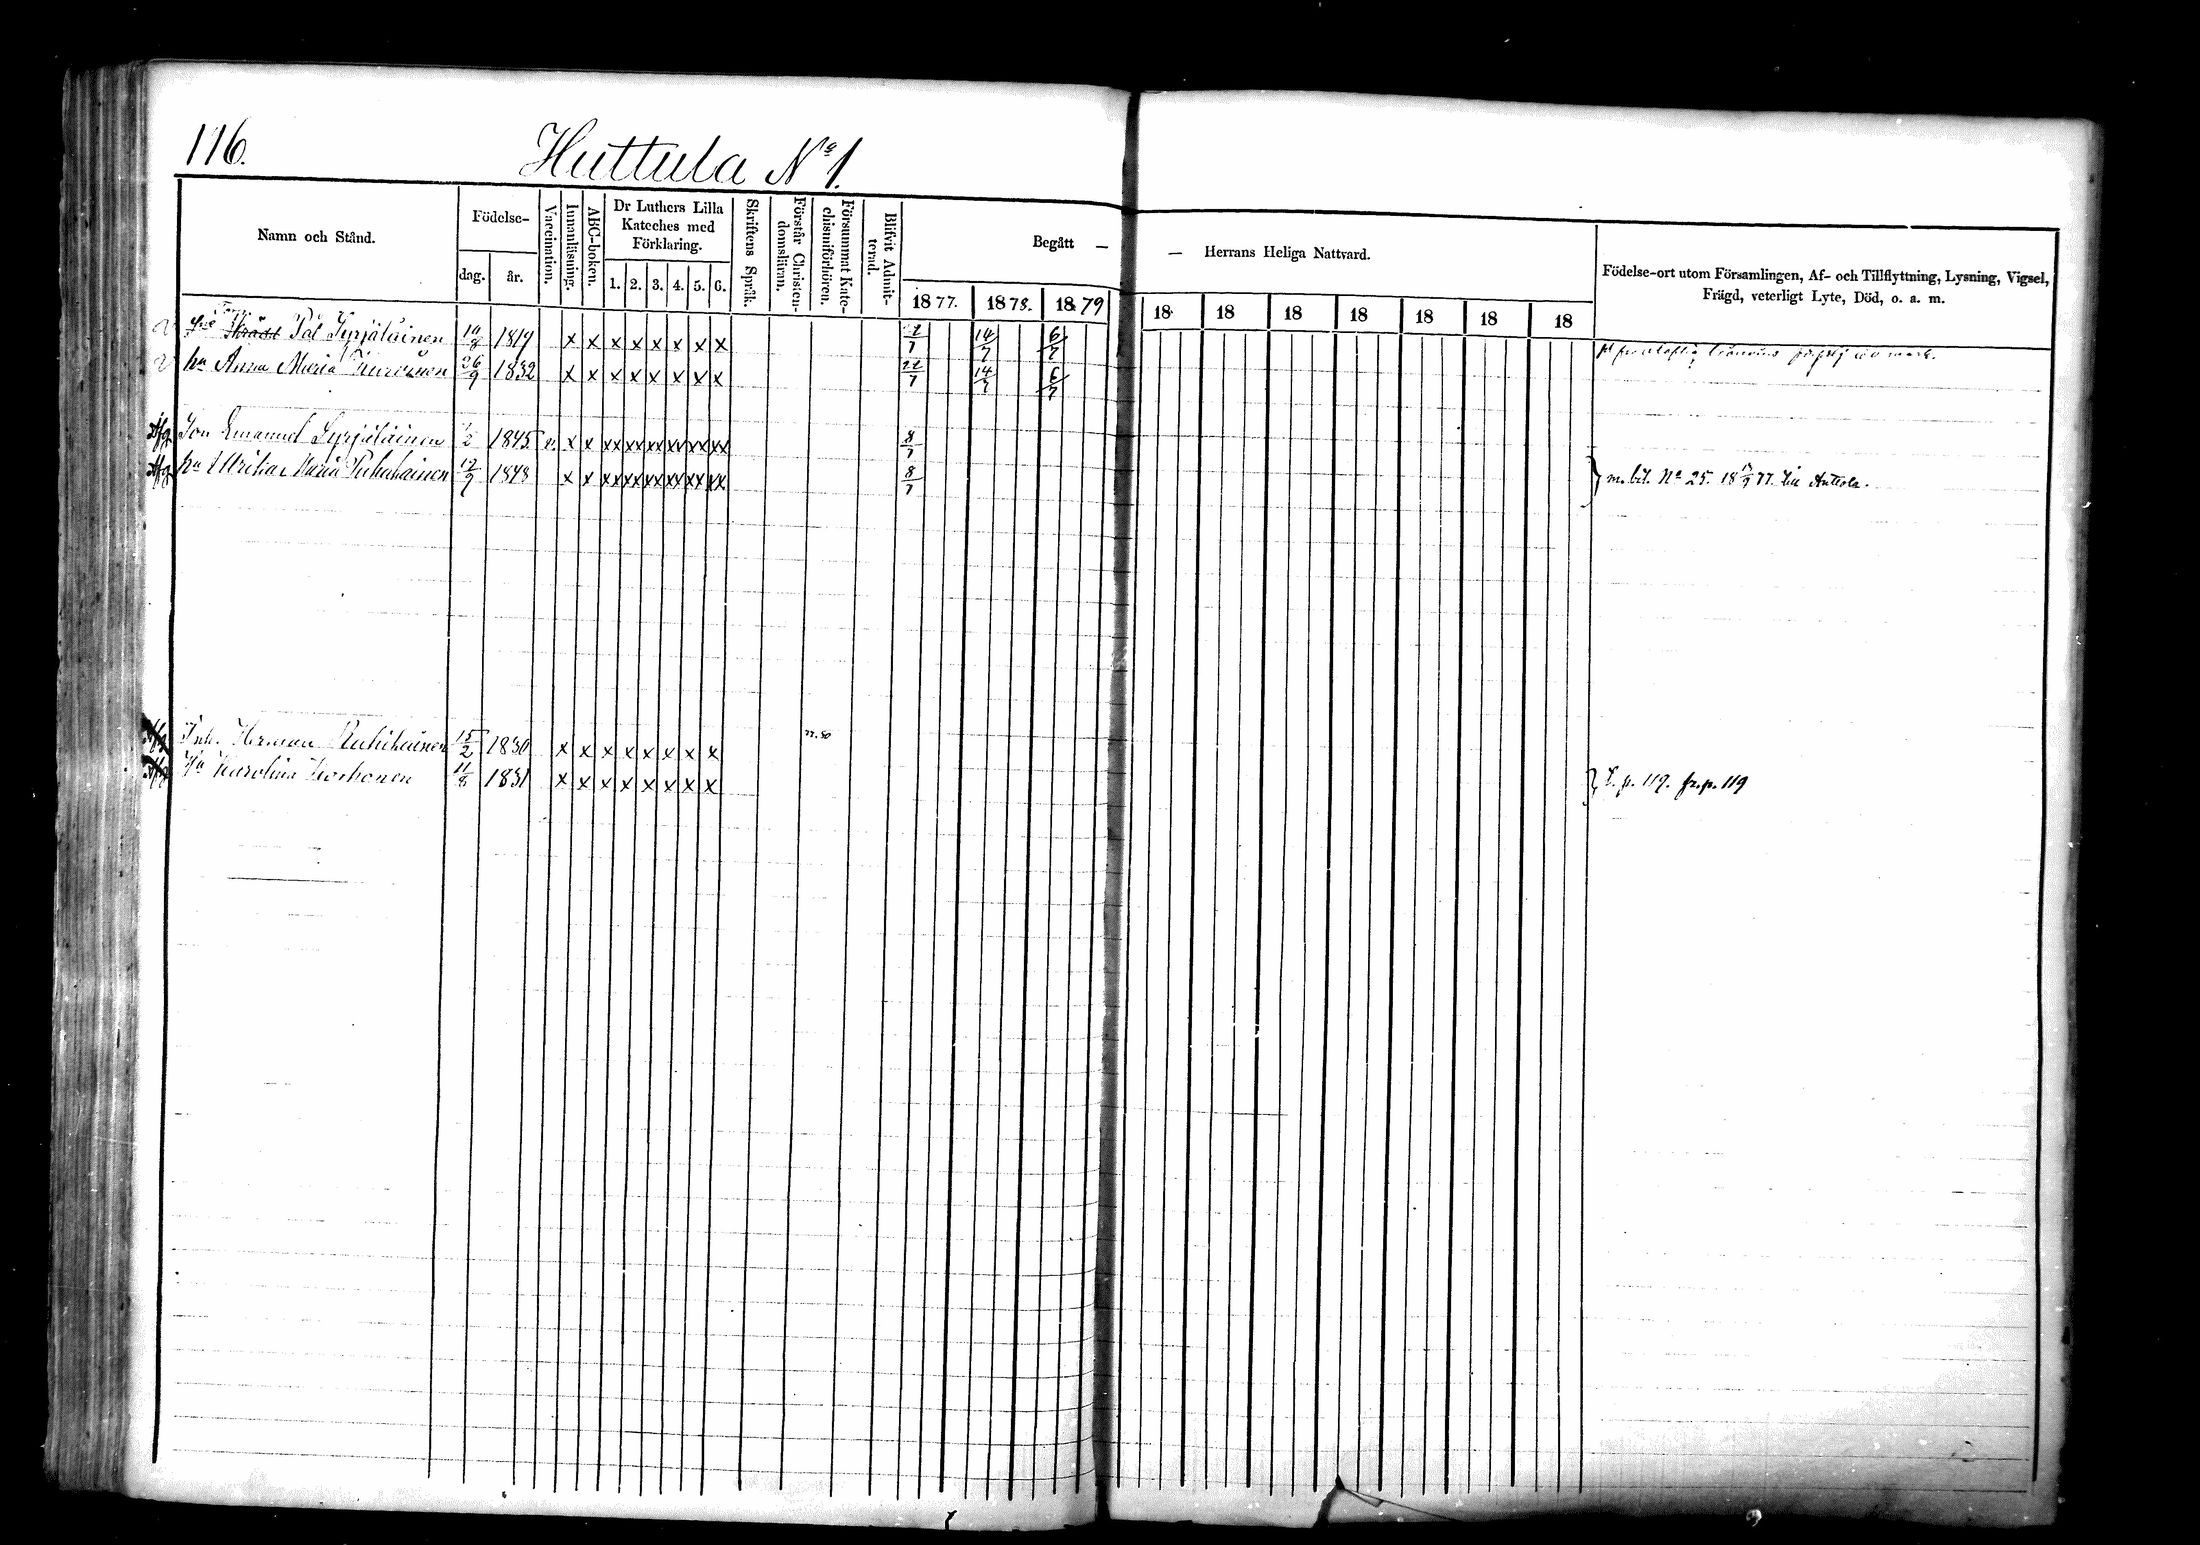 116.
Huttula No 1.
Namn och Stånd.
Födelse-
dag.
år.
Vaccination.
Innanläsning.
ABC-boken.
Dr Luthers Lilla
Kateches med
Förklaring.
1. 2. 3. 4. 5. 6.
Skriftens Språk.
Förstår Christen-
domsläran.
Försummat Kate-
chismiförhören.
Blifvit Admit-
terad.
Begått —
— Herrans Heliga Nattvard.
1877. 1878. 1879 18 18 18 18 18 18 18
Födelse-ort utom Församlingen, Af- och Tillflyttning, Lysning, Vigsel,
Frägd, veterligt Lyte, Död, o. a. m.
Pål Syrjäläinen 1819 x x x x x x x x 14/7 6/7
hu Anna Maria 26/9 1832 x x x x x x x x 22/7 14/7 6/7
Afg Son Emanuel Syrjäläinen 1845 v. x x xx xx xx xx xx xx 8/7
Afg hu Maria 12/9 1848 x x xx xx xx xx xx xx 8/7
m. bet. No 25. 18 77. till Anttola.
Afg Inh. Herman 15/2 1830 x x x x x x x x
Afg Hu Karolina Korhonen 11/8 1831 x x x x x x x x
T. p. 119. fr. p. 119